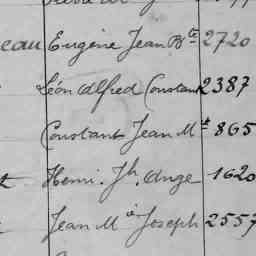 eau Eugène Jean Bte 2720
Léon Alfred Constant 2387
Constant Jean Mie 865
Henri Jh. Ange 1620
Jean Mie Joseph 2557